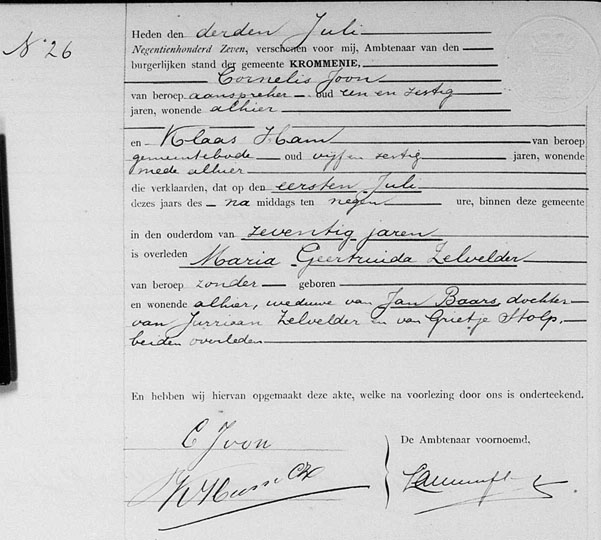 No 26
Heden den derden Juli
Negentienhonderd Zeven, verschenen voor mij, Ambtenaar van den
burgerlijken stand der gemeente KROMMENIE,
Cornelis Joon
van beroep aanspreker oud een en zestig
jaren, wonende alhier
en Klaas Ham van beroep
gemeentebode oud vijf en zestig jaren, wonende
mede alhier
die verklaarden, dat op den eersten Juli
dezes jaars des na middags ten negen ure, binnen deze gemeente
in den ouderdom van zeventig jaren
is overleden Maria Geertruida Zelvelder
van beroep zonder geboren
en wonende alhier, weduwe van Jan Baars, dochter
van Jurriaan Zelvelder en van Grietje Stolp,
beiden overleden
En hebben wij hiervan opgemaakt deze akte, welke na voorlezing door ons is onderteekend.
C Joon
De Ambtenaar voornoemd,
K Ham